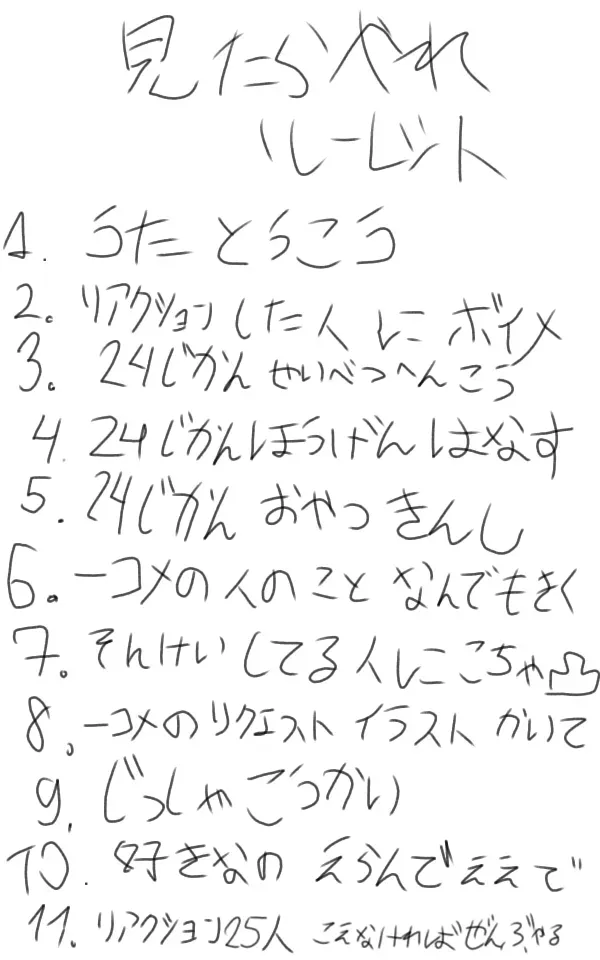 見たらやれ
ルーレット
1. うたとうこう
2. リアクションした人にボイメ
3. 24じかんせいべつへんこう
4. 24じかんほうげんはなす
5. 24じかん おやつ きんし
6. 一コメの人のこと なんでもきく
7. そんけいしてる人にこちゃ凸
8. 一コメのリクエスト イラスト かいて
9. じっしゃごうかい
10. 好きなの えらんでええで
11. リアクション25人 こえなければぜんぶやる